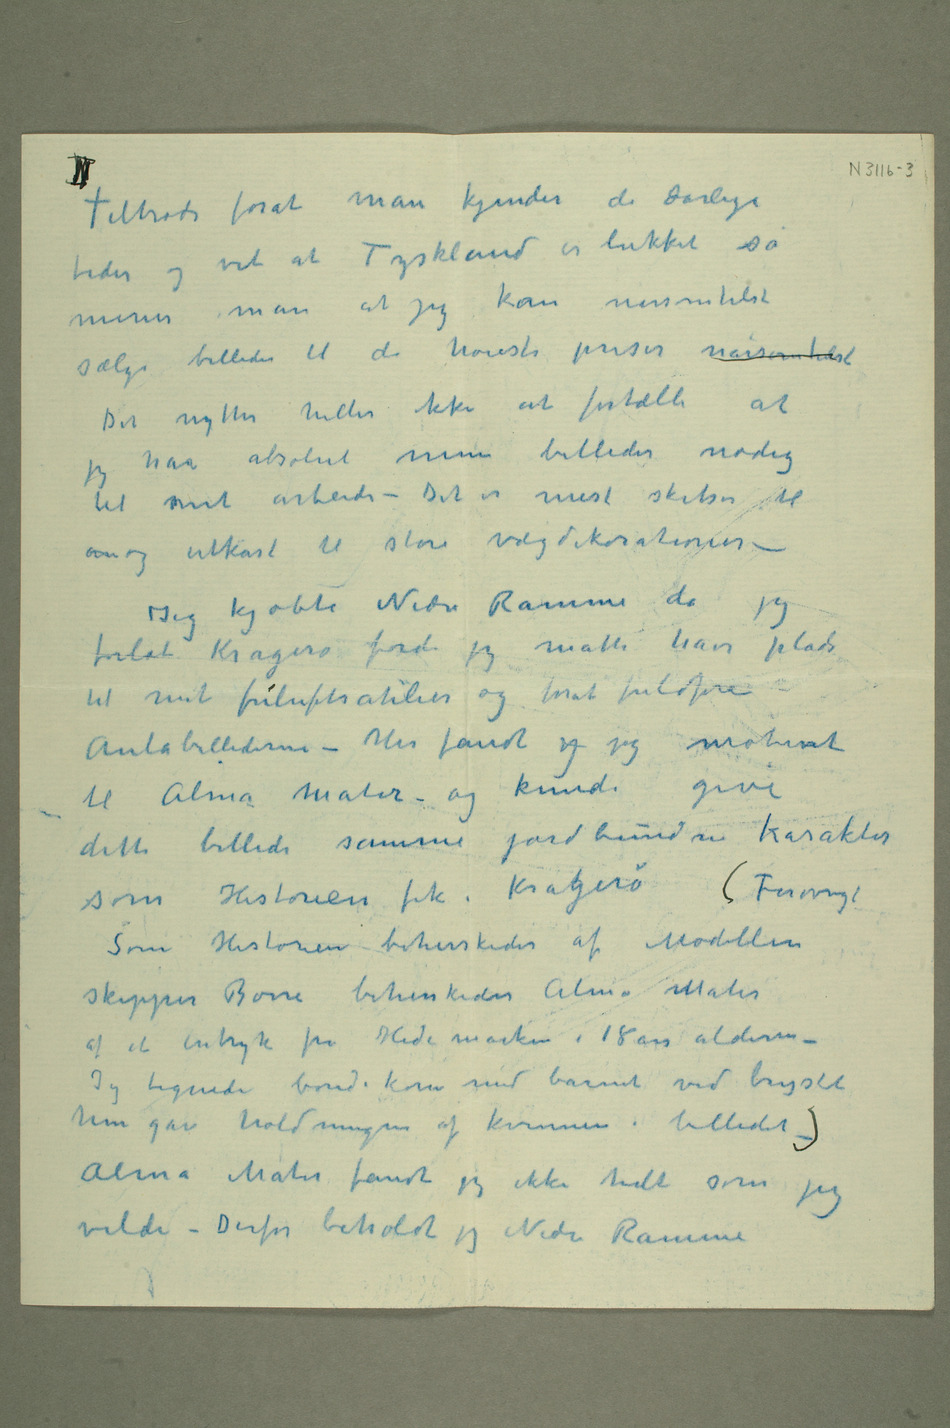 N
N 3116-3
Tiltrods forat man kjender de dårlige
tider og vet at Tyskland er lukket så
mener man at jeg kan nårsomhelst
sælge billeder til de høieste priser nårsomhelst
Det nytter heller ikke at fortælle at
jeg har absolut mine billeder nødig
til mit arbeide – Det er mest skitser til
og utkast til store vægdekorationer –
Jeg kjøbte Nedre Ramme da jeg
forlot Kragerø fordi jeg måtte have plads
til mit friluftsatelier og forat fuldføre
Aulabillederne – Her fandt jeg jeg motivet
til Alma Mater – og kunde give
dette billede samme jordbundne karakter
som Historien fik i Kragerø (Forøvrigt
Som Historien beherskedes af Modellen
skipper Børre beherskedes Alma Mater
af et intryk fra Hedemarken i 18 års alderen –
Jeg tegnede bondekone med barnet ved brystet
hun gav holdningen af kvinnen i billedet –)
Alma Mater fandt jeg ikke helt som jeg
vilde – Derfor beholdt jeg Nedre Ramme